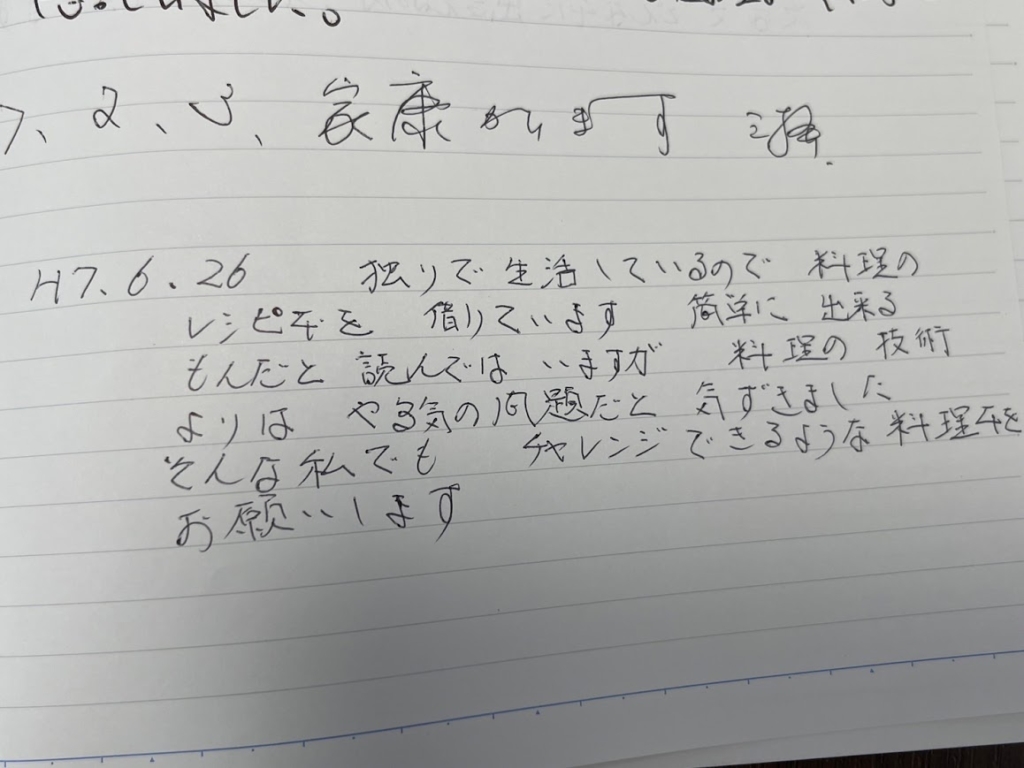 7、2、3、家康かります
H7.6.26 独りで生活しているので 料理の
レシピ本を 借りています 簡単に 出来る
もんだと 読んではいますが 料理の 技術
よりは やる気の問題だと 気ずきました
そんな私でも チャレンジできるような料理本を
お願いします